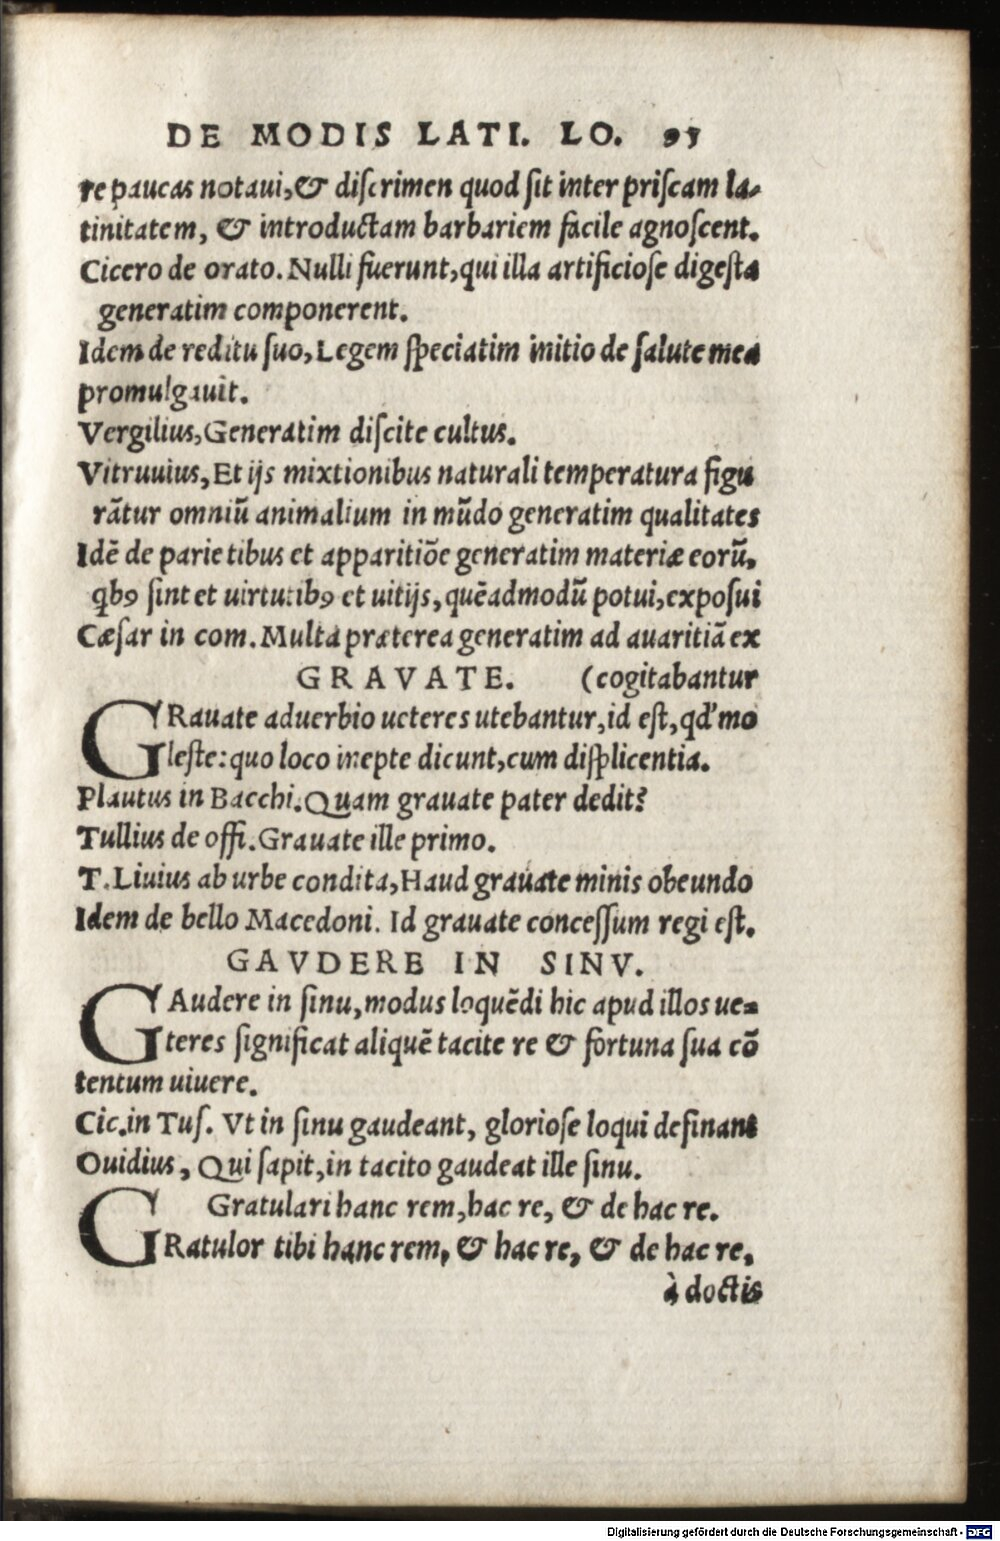 DE MODIS LATI. LO. 95
re paucas notaui, & diſcrimen quod ſit inter priſcam la-
tinitatem, & introductam barbariem facile agnoſcent.
Cicero de orato. Nulli fuerunt, qui illa artificioſe digeſta
generatim componerent.
Idem de reditu ſuo, Legem ſpeciatim initio de ſalute mea
promulgauit.
Vergilius, Generatim diſcite cultus.
Vitruuius, Et ijs mixtionibus naturali temperatura figu
rātur omniū animalium in mūdo generatim qualitates
Idē de parietibus et apparitiōe generatim materiæ eorū,
qbꝰ ſint et uirtutibꝰ et uitijs, quēadmodū potui, expoſui
Cæſar in com. Multa præterea generatim ad auaritiā ex
GRAVATE. (cogitabantur
GRauate aduerbio ueteres utebantur, id eſt, qd' mo
leſte: quo loco inepte dicunt, cum diſplicentia.
Plautus in Bacchi. Quam grauate pater dedit?
Tullius de offi. Grauate ille primo.
T. Liuius ab urbe condita, Haud grauate minis obeundo
Idem de bello Macedoni. Id grauate conceſſum regi eſt.
GAVDERE IN SINV.
GAudere in ſinu, modus loquēdi hic apud illos ue-
teres ſignificat aliquē tacite re & fortuna ſua cō
tentum uiuere.
Cic. in Tuſ. Vt in ſinu gaudeant, glorioſe loqui deſinant
Ouidius, Qui ſapit, in tacito gaudeat ille ſinu.
Gratulari hanc rem, hac re, & de hac re.
GRatulor tibi hanc rem, & hac re, & de hac re,
à doctis
Digitalisierung gefördert durch die Deutsche Forschungsgemeinschaft - DFG